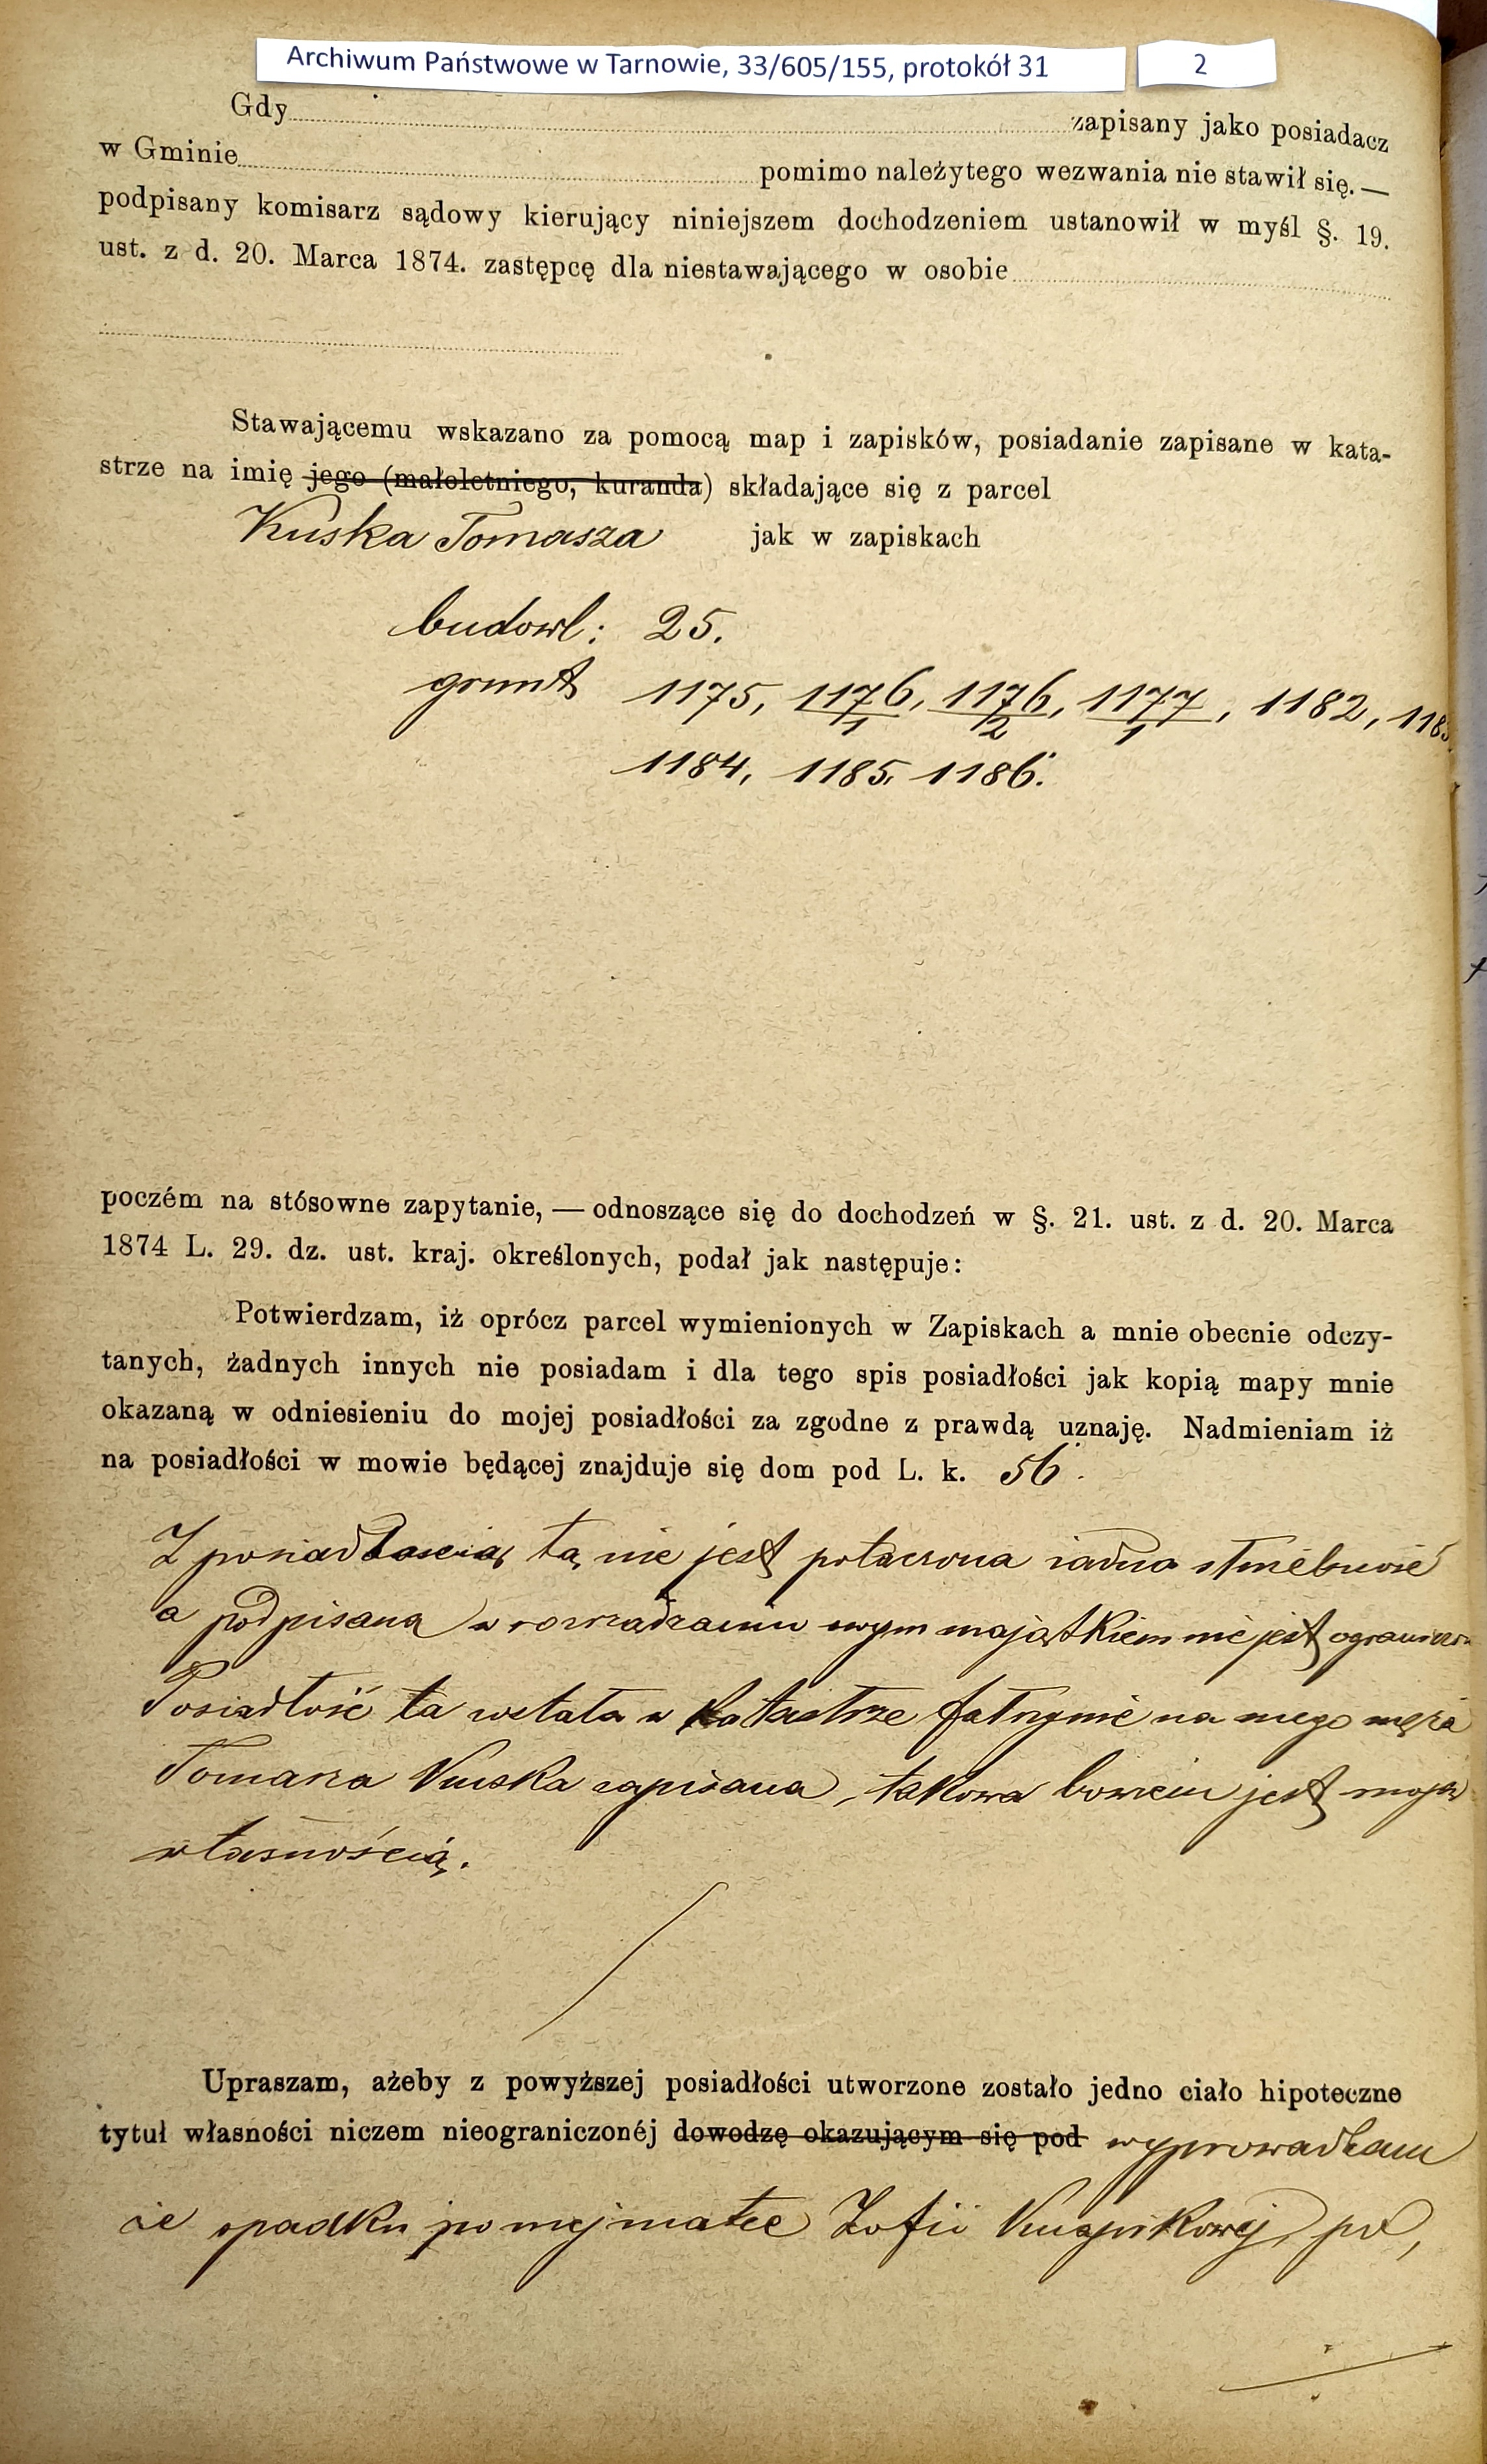 Archiwum Państwowe w Tarnowie, 33/605/155, protokół 31 2
Gdy zapisany jako posiadacz
w Gminie pomimo należytego wezwania nie stawił się. —
podpisany komisarz sądowy kierujący niniejszem dochodzeniem ustanowił w myśl §. 19.
ust. z d. 20. Marca 1874. zastępcę dla niestawającego w osobie
Stawającemu wskazano za pomocą map i zapisków, posiadanie zapisane w kata-
strze na imię jego (małoletniego, kuranda) składające się z parcel
Kuska Tomasza jak w zapiskach
budowl: 25.
grunt 1175, 1176/1, 1176/2, 1177/1, 1182, 1183
1184, 1185, 1186.
poczém na stósowne zapytanie, — odnoszące się do dochodzeń w §. 21. ust. z d. 20. Marca
1874 L. 29. dz. ust. kraj. określonych, podał jak następuje:
Potwierdzam, iż oprócz parcel wymienionych w Zapiskach a mnie obecnie odczy-
tanych, żadnych innych nie posiadam i dla tego spis posiadłości jak kopią mapy mnie
okazaną w odniesieniu do mojej posiadłości za zgodne z prawdą uznaję. Nadmieniam iż
na posiadłości w mowie będącej znajduje się dom pod L. k. 56.
Z posiadłością tą nie jest połączona żadna służebność
a podpisana w rozrządzaniu swym majątkiem nie jest ogranicz
Posiadłość ta została w katastrze fałszywie na mego męża
Tomasza Kuska zapisana, takowa bowiem jest moją
własnością.
Upraszam, ażeby z powyższej posiadłości utworzone zostało jedno ciało hipoteczne
tytuł własności niczem nieograniczonéj dowodzę okazującym się pod wyprowadzam
ze spadku po mej matce Zofii Knapikowej, po,